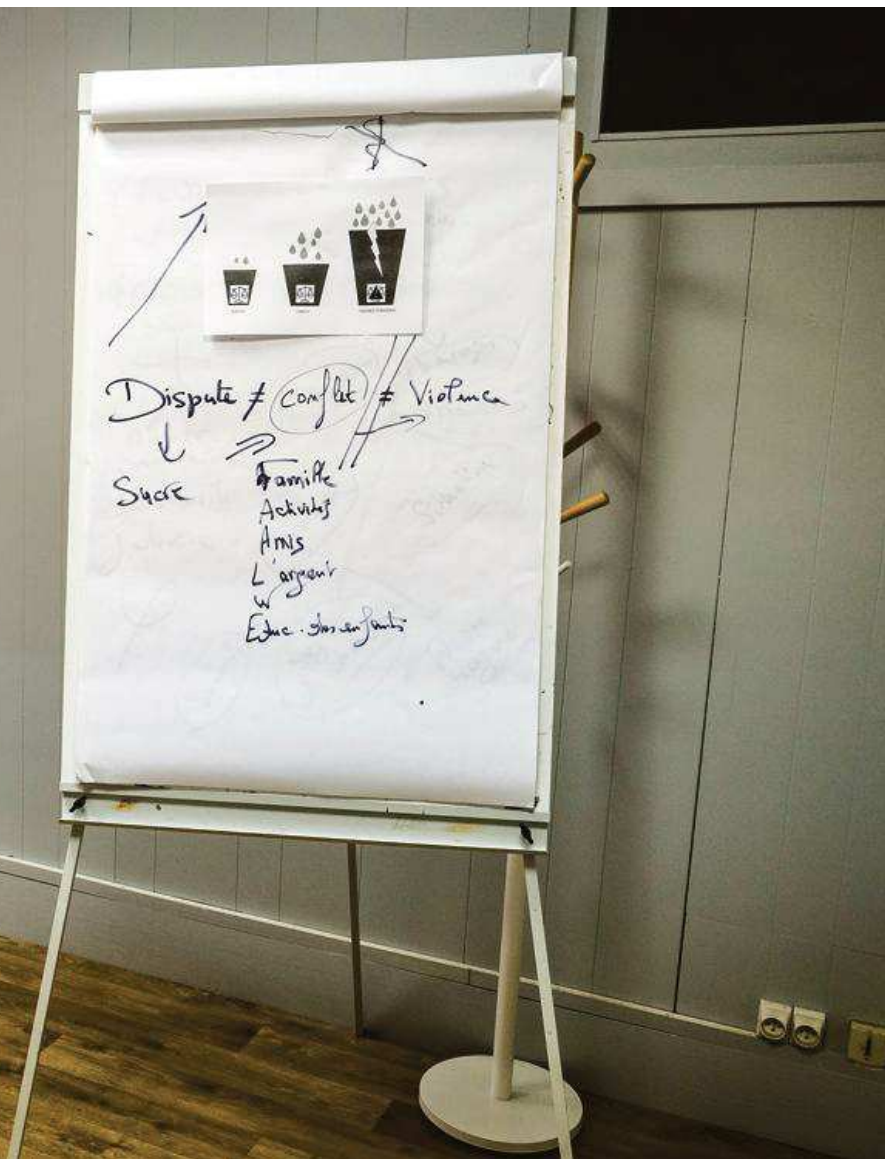 Dispute ≠ conflit ≠ Violence
Sucre
Famille
Activités
Amis
L'argent
W
Educ. des enfants